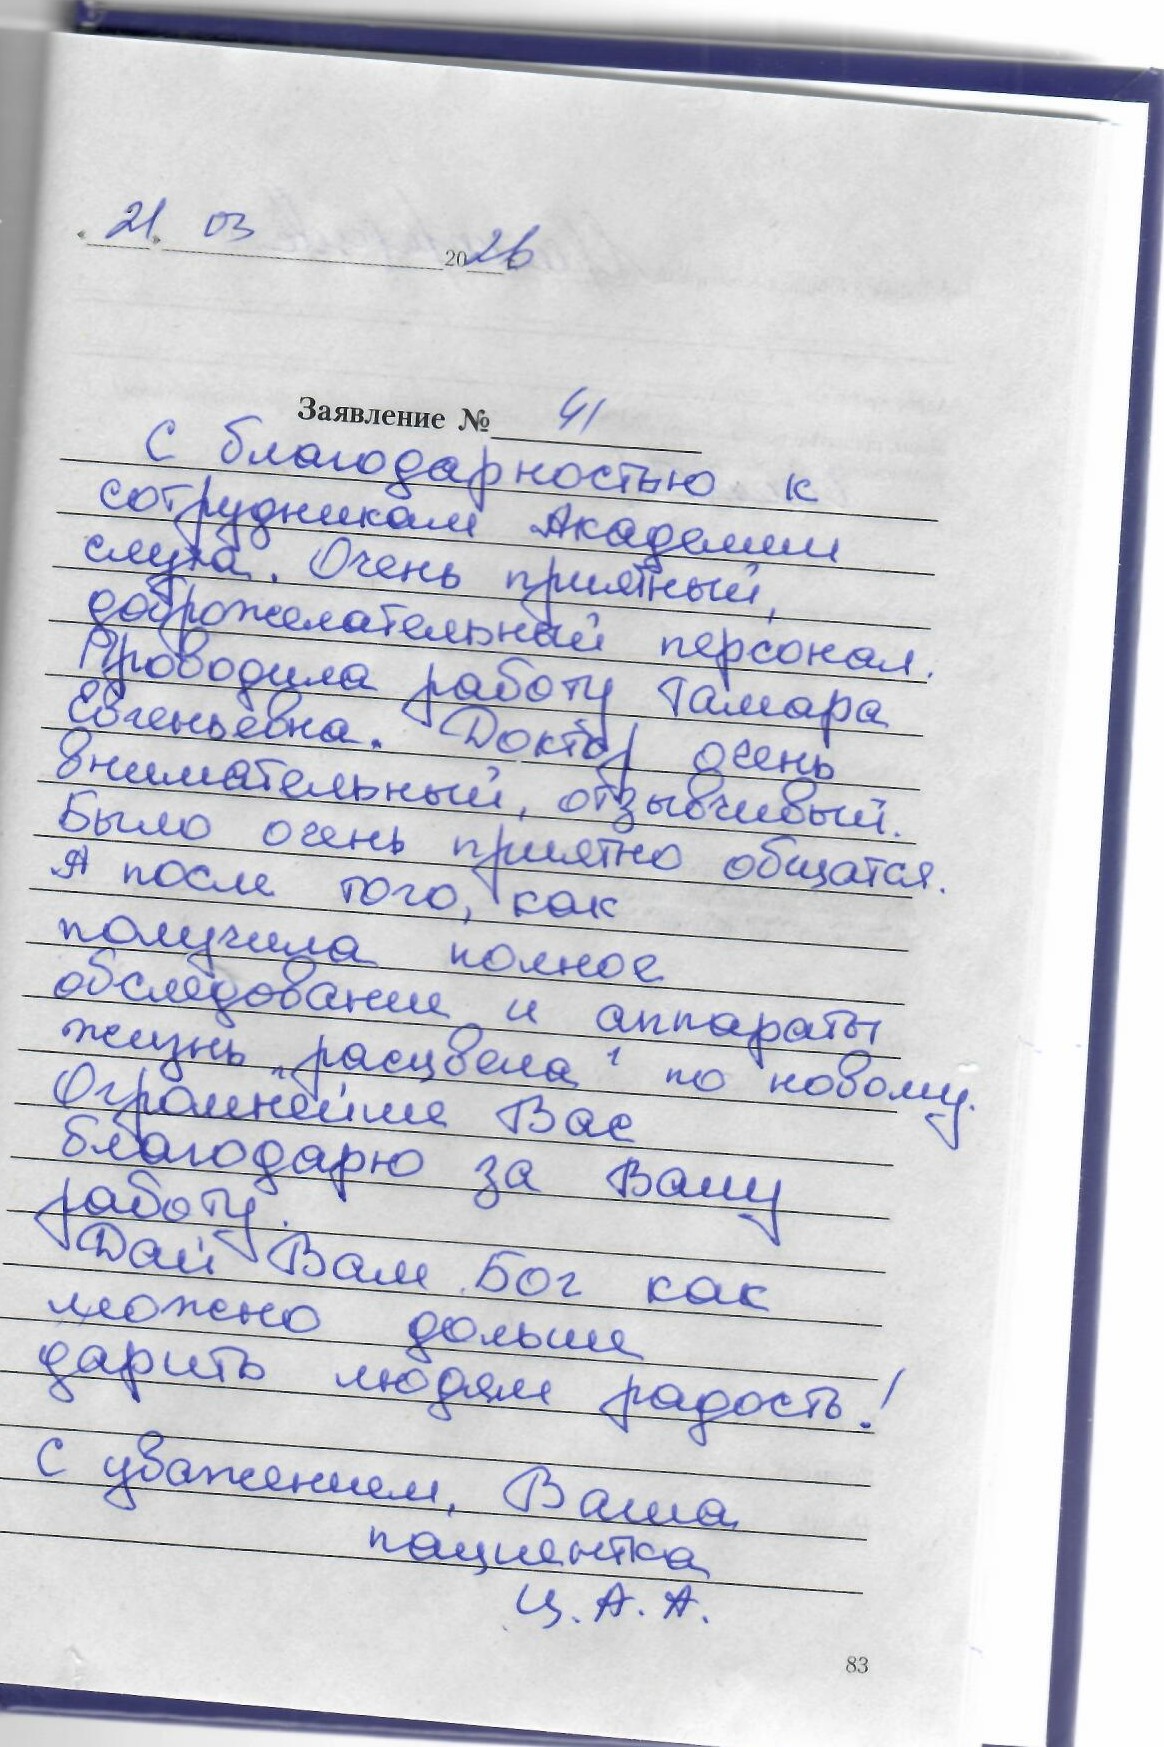 « 21 » 03 2026
Заявление № 41
С благодарностью к
сотрудникам Академии
слуха. Очень приятный,
доброжелательный персонал.
Проводила работу Тамара
Евгеньевна. Доктор очень
внимательный, отзывчивый.
Было очень приятно общатся.
А после того, как
получила полное
обследование и аппараты
жизнь „расцвела" по новому.
Огромнейше Вас
благодарю за Вашу
работу.
Дай Вам Бог как
можно дольше
дарить людям радость!
С уважением, Ваша
пациентка
Ц. А. А.
83